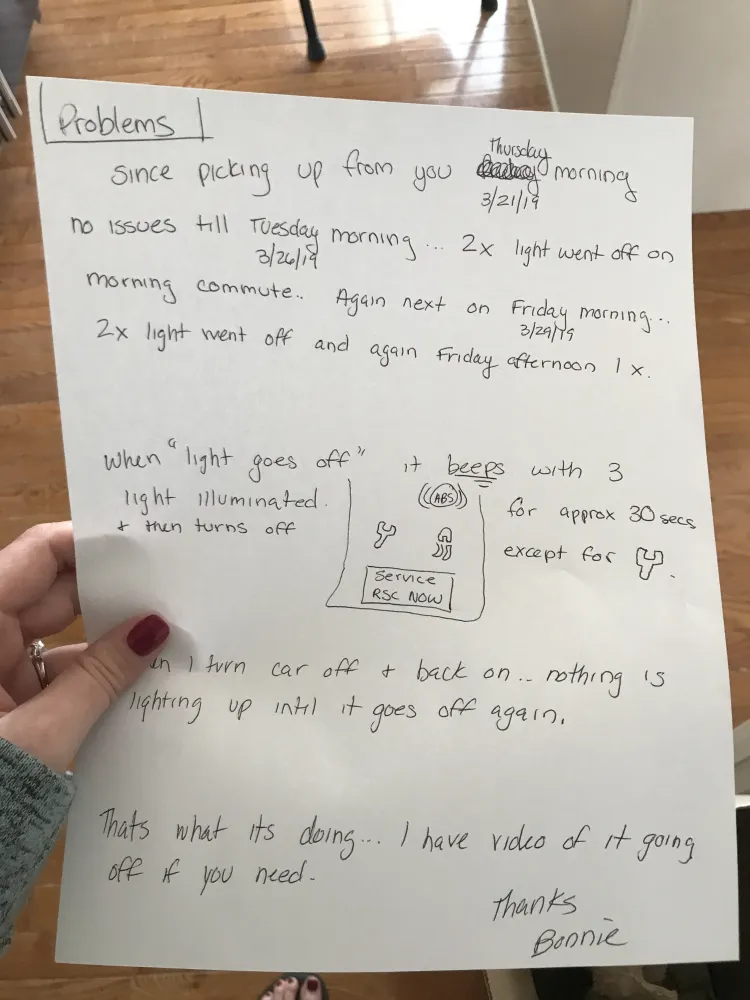 Problems
Since picking up from you Thursday morning
3/21/19
no issues till Tuesday morning... 2x light went off on
3/26/19
morning commute.. Again next on Friday morning...
3/29/19
2x light went off and again Friday afternoon 1x.
When "light goes off" it beeps with 3
light illuminated.
+ then turns off
ABS
Service
RSC NOW
for approx 30 secs
except for
I turn car off + back on.. nothing is
lighting up until it goes off again.
Thats what its doing... I have video of it going
off if you need.
Thanks
Bonnie